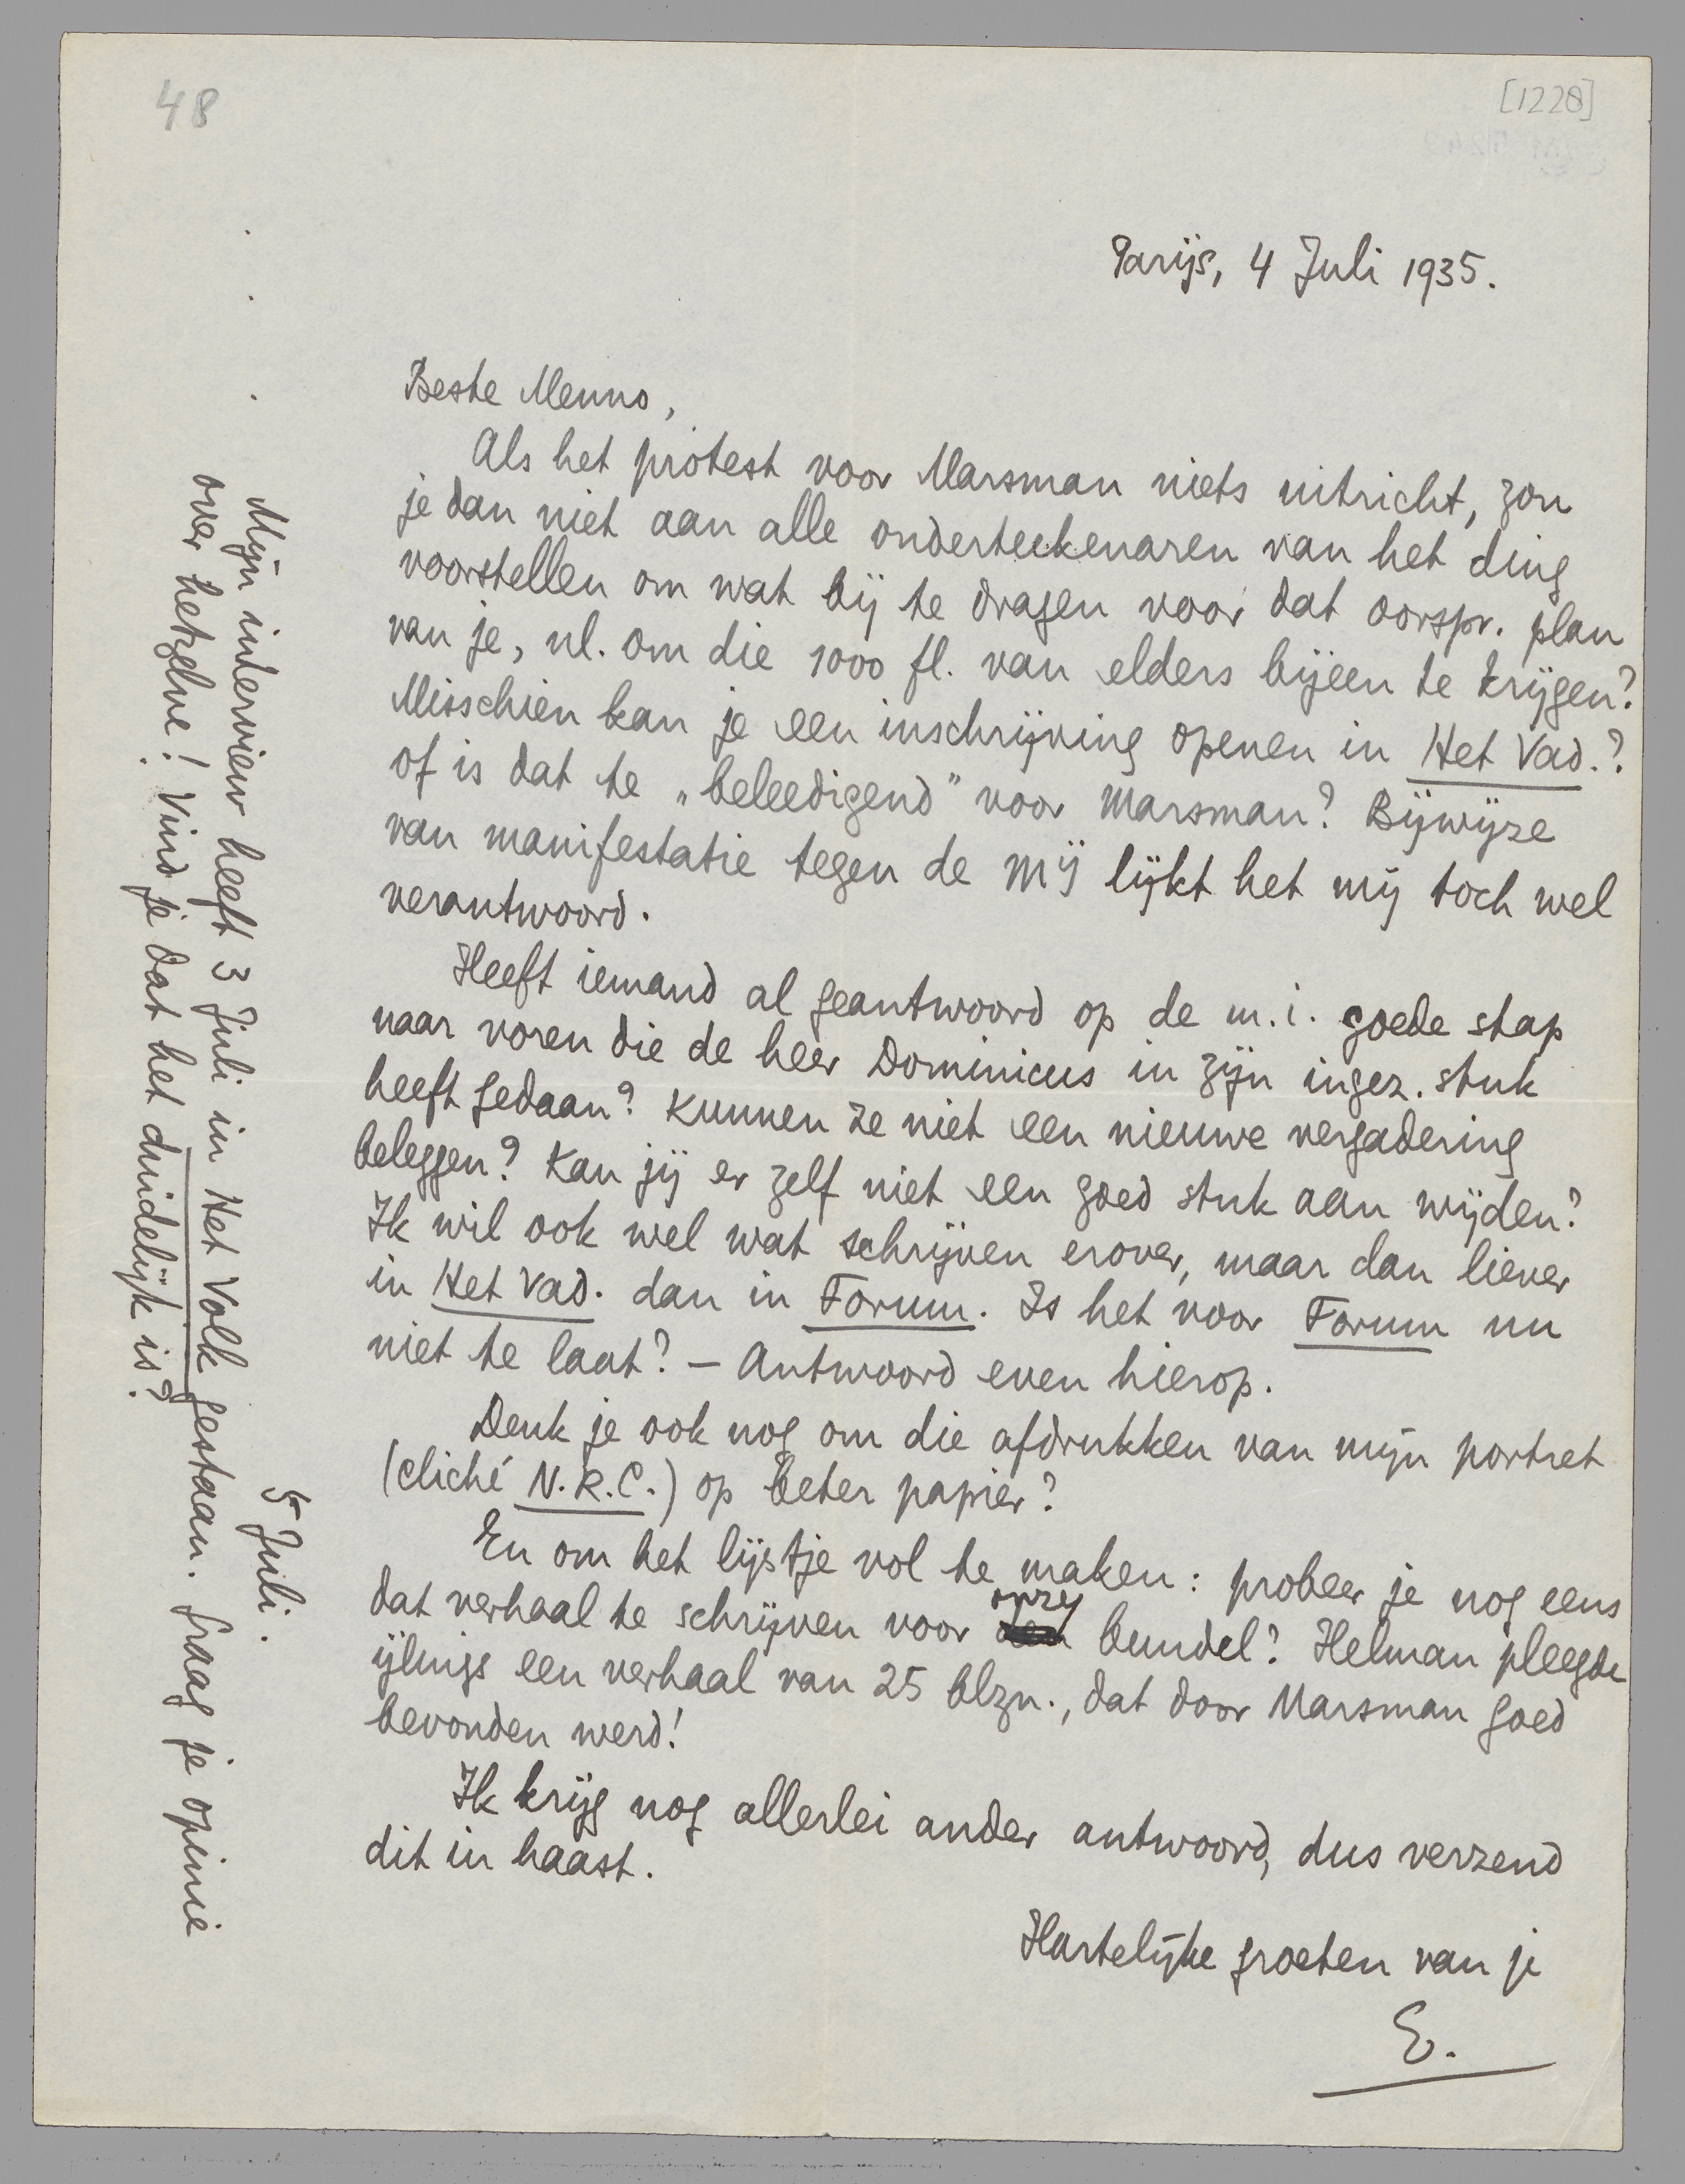 48
[1228]
Parijs, 4 Juli 1935.
Beste Menno,
Als het protest voor Marsman niets uitricht, zou
je dan niet aan alle onderteekenaren van het ding
voorstellen om wat bij te dragen voor dat oorspr. plan
van je, nl. om die 1000 fl. van elders bijeen te krijgen?
Misschien kan je een inschrijving openen in Het Vad.?
of is dat te „beleedigend” voor Marsman? Bijwijze
van manifestatie tegen de Mij lijkt het mij toch wel
verantwoord.
Heeft iemand al geantwoord op de m.i. goede stap
naar voren die de heer Dominicus in zijn ingez. stuk
heeft gedaan? Kunnen ze niet een nieuwe vergadering
beleggen? Kan jij er zelf niet een goed stuk aan wijden?
Ik wil ook wel wat schrijven erover, maar dan liever
in Het Vad. dan in Forum. Is het voor Forum nu
niet te laat? — Antwoord even hierop.
Denk je ook nog om die afdrukken van mijn portret
(cliché N.R.C.) op beter papier?
En om het lijstje vol te maken: probeer je nog eens
dat verhaal te schrijven voor onzen bundel? Helman pleegde
ijlings een verhaal van 25 blzn., dat door Marsman goed
bevonden werd!
Ik krijg nog allerlei ander antwoord, dus verzend
dit in haast.
Hartelijke groeten van je
E.
5 Juli.
Mijn interview heeft 3 Juli in Het Volk gestaan. Graag je opinie
over hetzelve! Vind je dat het duidelijk is?